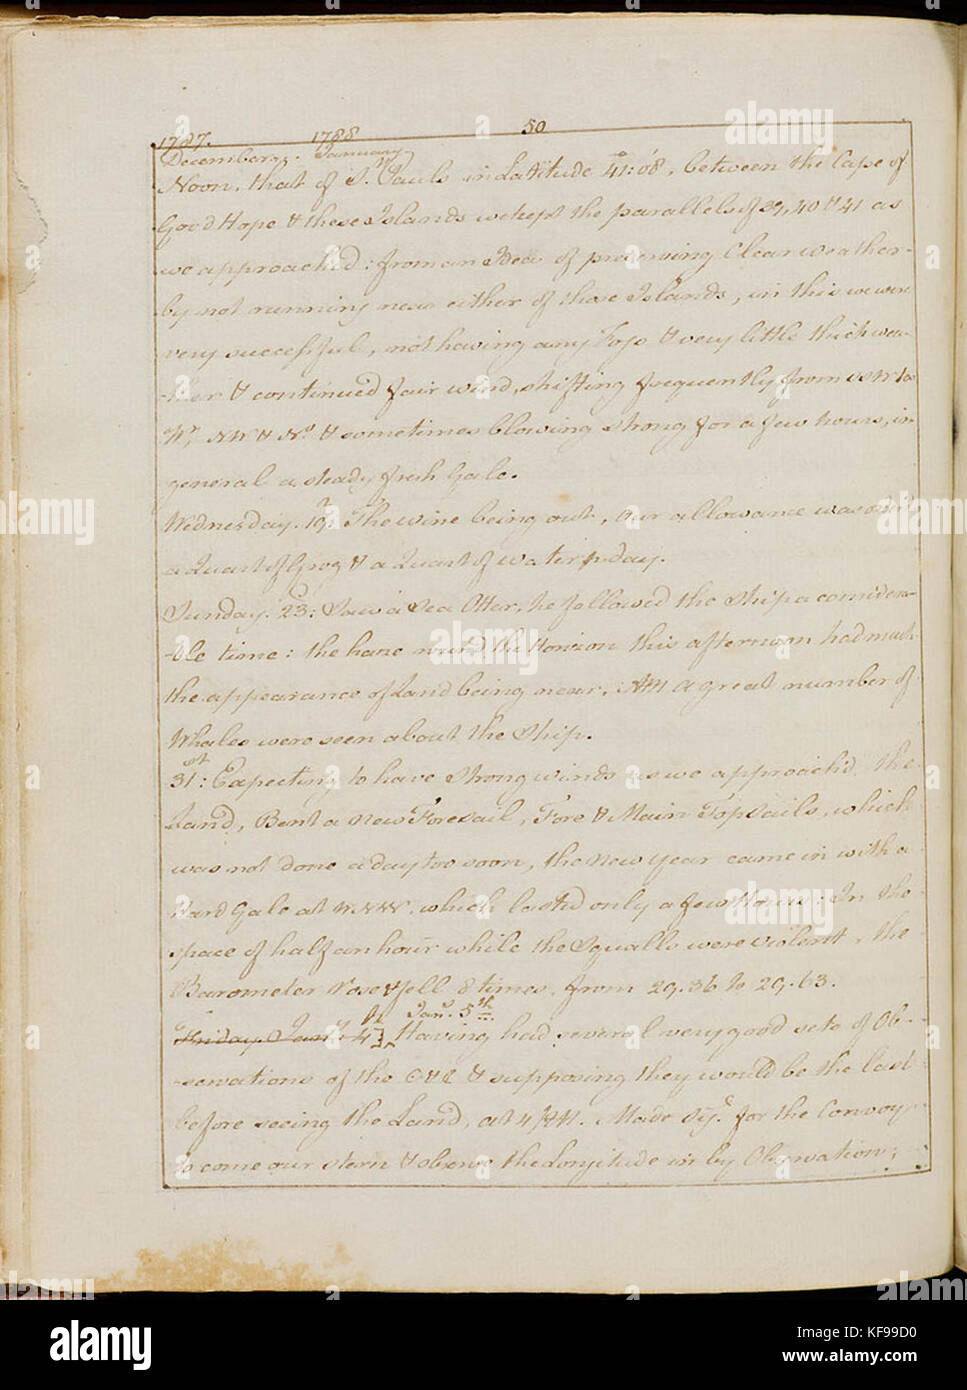 50
1787. 1788
December. January.
Noon, that of St. Pauls in Latitude 41°:08', between the Cape of
Good Hope & these Islands we kept the parallels of 39, 40 & 41 as
we approached: from an Idea of preserving Clear weather
by not running near either of those Islands, in this we were
very successful, not having any Fogs & very little thick wea-
-ther & continued fair wind, shifting frequently from SSW to
W, NW & N. & sometimes blowing strong for a few hours, in
general a steady fresh Gale.
Wednesday. 19: The wine being out, our allowance was only
a Quart of Grog & a Quart of water p day.
Sunday. 23d: Saw a Sea Otter, he followed the Ship a consider-
-ble time: the haze round the Horizon this afternoon had much
the appearance of Land being near. AM a great number of
Whales were seen about the Ship.
31st: Expecting to have Strong winds as we approach'd the
Land, Bent a new Foresail, Fore & Main Topsails, which
was not done a day too soon, the new year came in with a
Hard Gale at WNW. which lasted only a few Hours: In the
space of half an hour while the Squalls were violent, the
Barometer rose & fell 8 times, from 29.36 to 29.63.
Friday Jany. 4 Jany. 5th Having had several very good sets of Ob-
-servations of the & supposing they would be the last
before seeing the Land, at 4 PM. Made Sigl. for the Convoy
to come our stern & observe the Longitude in by Observation;
alamy
a
KF99D0
www.alamy.com